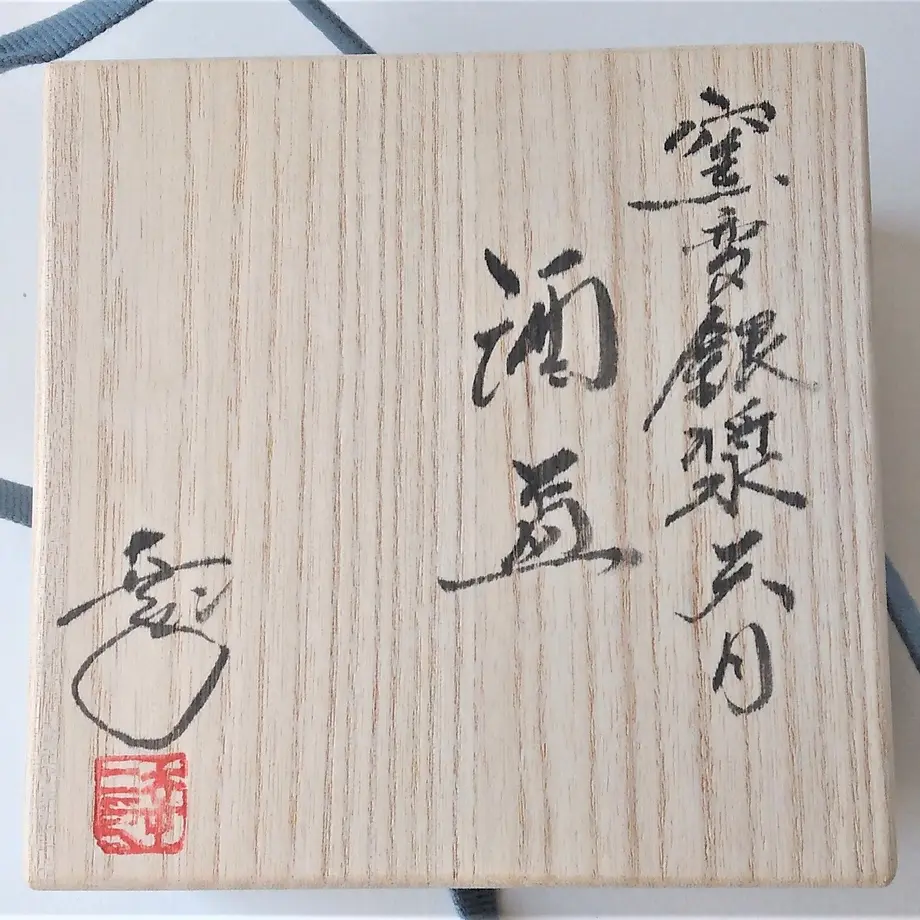 窯変銀漿天目
酒盃